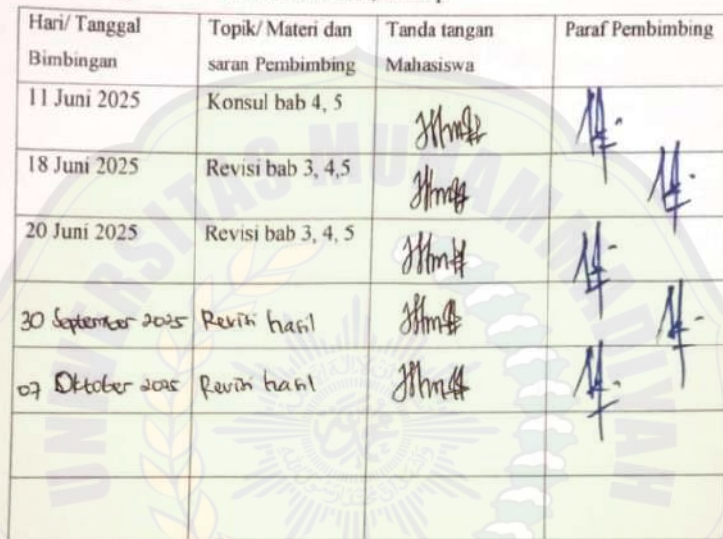 Hari/ Tanggal Bimbingan | Topik/ Materi dan saran Pembimbing | Tanda tangan Mahasiswa | Paraf Pembimbing
11 Juni 2025 | Konsul bab 4, 5
18 Juni 2025 | Revisi bab 3, 4,5
20 Juni 2025 | Revisi bab 3, 4, 5
30 September 2025 | Revisi hasil
07 Oktober 2025 | Revisi hasil
UNIVERSITAS MUHAMMADIYAH